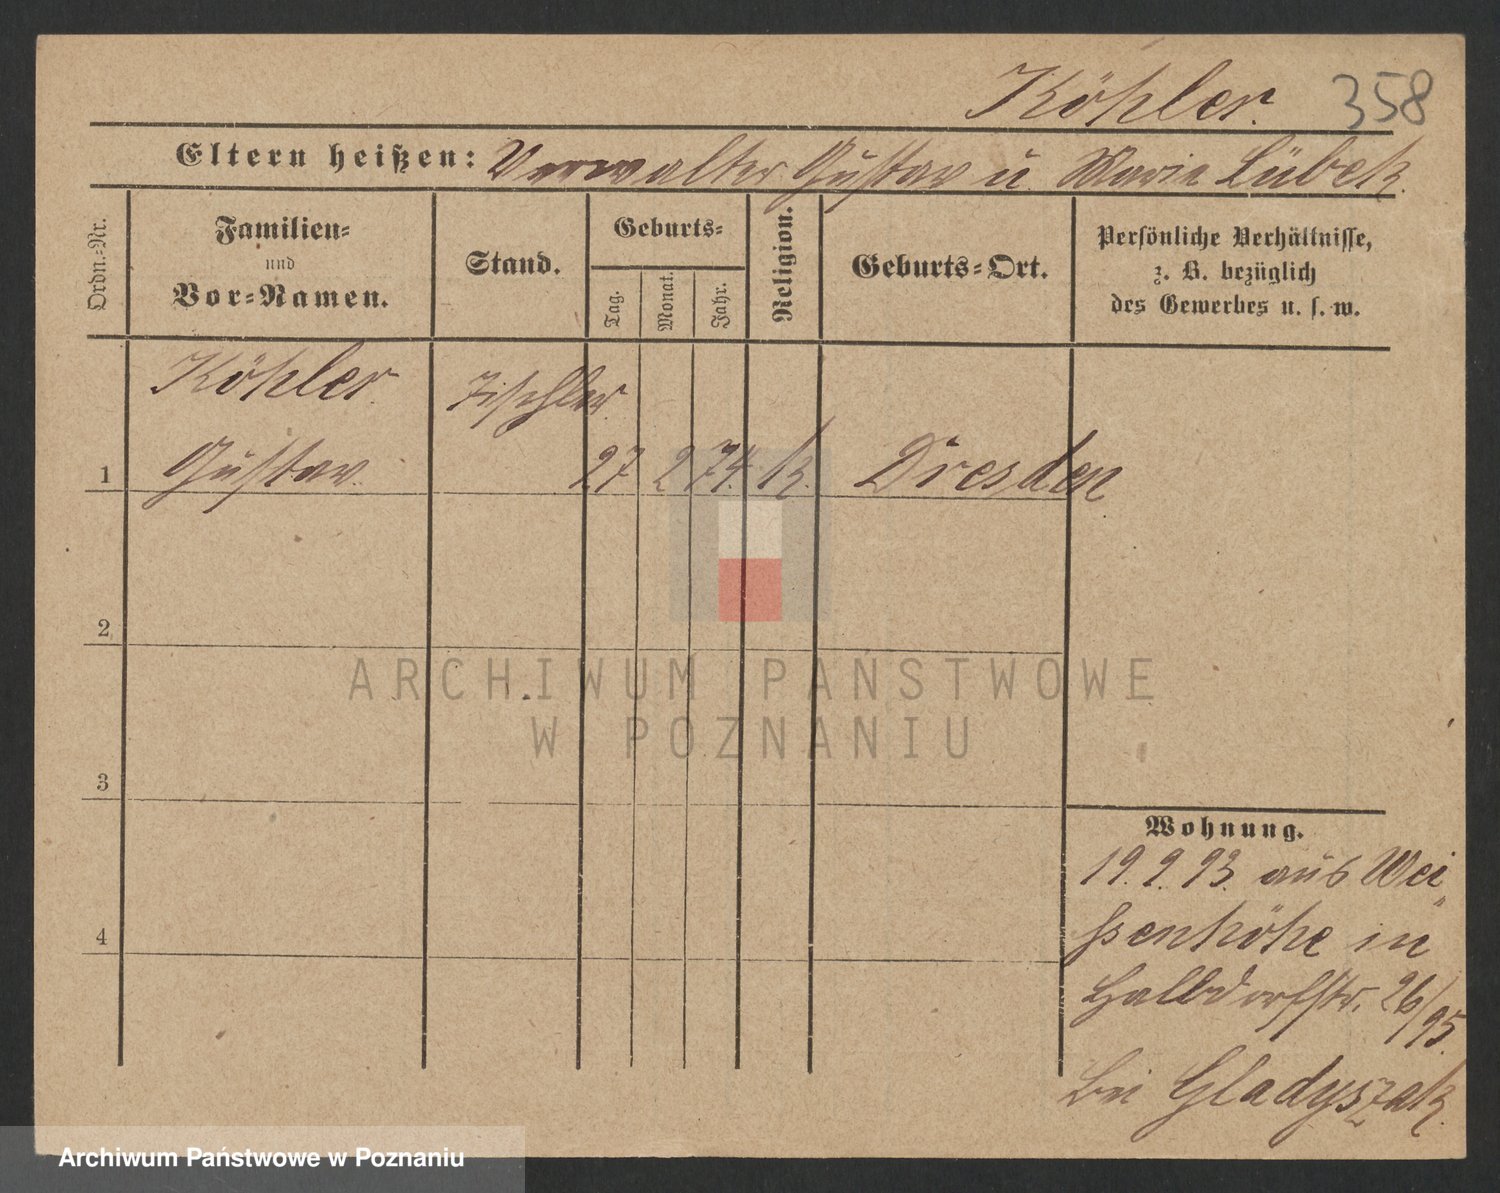 Köhler. 358
Eltern heißen: Verwalter Gustav u. Marie Lübek.
Ordn.-Nr.
Familien-
und
Vor-Namen.
Stand.
Geburts-
Tag.
Monat.
Jahr.
Religion.
Geburts-Ort.
Persönliche Verhältnisse,
z. B. bezüglich
des Gewerbes u. s. w.
Köhler Tischler
1 Gustav 27 2 74. k. Dresden
2
3
4
Wohnung.
19. 9. 93. aus Wei-
ssenhöhe in
Halbdorfstr. 26/95.
bei Gladyszak.
ARCHIWUM PAŃSTWOWE
W POZNANIU
Archiwum Państwowe w Poznaniu